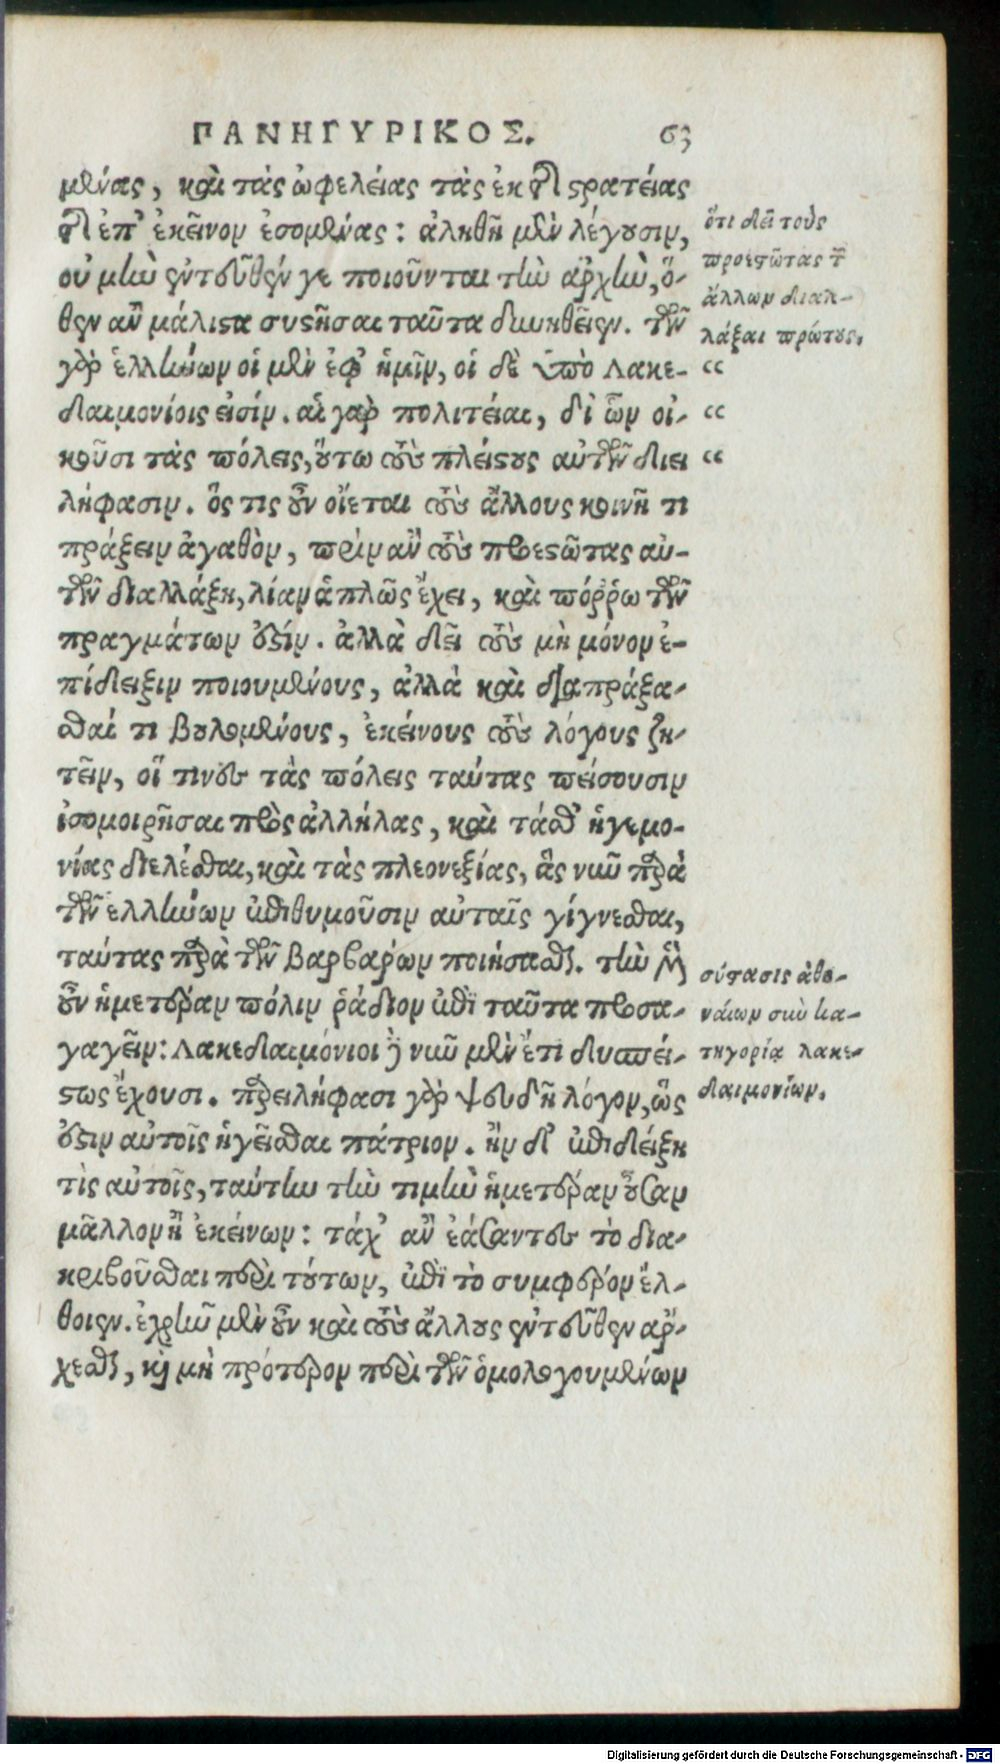 ΠΑΝΗΓΥΡΙΚΟΣ. 63
μένας, καὶ τὰς ὠφελείας τὰς ἐκ τῆς στρατείας
τῆς ἐπ' ἐκεῖνον ἐσομένας: ἀληθῆ μὲν λέγουσιν,
οὐ μὴν ἐντεῦθέν γε ποιοῦνται τὴν ἀρχὴν, ὅ-
θεν ἂν μάλιστα συστῆσαι ταῦτα δυνηθεῖεν. τῶν
γὰρ ἑλλήνων οἱ μὲν ἐφ' ἡμῖν, οἱ δὲ ὑπὸ Λακε-
δαιμονίοις εἰσίν. αἱ γὰρ πολιτεῖαι, δι' ὧν οἰ-
κοῦσι τὰς πόλεις, οὕτω τοὺς πλείστους αὐτῶν διει
λήφασιν. ὅς τις οὖν οἴεται τοὺς ἄλλους κοινῇ τι
πράξειν ἀγαθὸν, πρὶν ἂν τοὺς προεστῶτας αὐ-
τῶν διαλλάξῃ, λίαν ἁπλῶς ἔχει, καὶ πόῤῥω τῶν
πραγμάτων ἐστίν. ἀλλὰ δεῖ τοὺς μὴ μόνον ἐ-
πίδειξιν ποιουμένους, ἀλλὰ καὶ διαπράξα-
σθαί τι βουλομένους, ἐκείνους τοὺς λόγους ζη-
τεῖν, οἵ τινες τὰς πόλεις ταύτας πείσουσιν
ἰσομοιρῆσαι πρὸς ἀλλήλας, καὶ τάσθ' ἡγεμο-
νίας διελέσθαι, καὶ τὰς πλεονεξίας, ἃς νῦν παρὰ
τῶν ἑλλήνων ἐπιθυμοῦσιν αὐταῖς γίγνεσθαι,
ταύτας παρὰ τῶν βαρβάρων ποιήσασθαι. τὴν μὲν
οὖν ἡμετέραν πόλιν ῥάδιον ἐπὶ ταῦτα προσα-
γαγεῖν: Λακεδαιμόνιοι δὲ νῦν μὲν ἔτι δυσπεί-
στως ἔχουσι. παρειλήφασι γὰρ ψευδῆ λόγον, ὥς
ἐστιν αὐτοῖς ἡγεῖσθαι πάτριον. ἢν δ' ἐπιδείξῃ
τὶς αὐτοῖς, ταύτην τὴν τιμὴν ἡμετέραν οὖσαν
μᾶλλον ἢ ἐκείνων: τάχ' ἂν ἐάσαντες τὸ δια-
κριβοῦσθαι περὶ τούτων, ἐπὶ τὸ συμφέρον ἔλ-
θοιεν. ἐχρῆν μὲν οὖν καὶ τοὺς ἄλλους ἐντεῦθεν ἄρ-
χεσθαι, καὶ μὴ πρότερον περὶ τῶν ὁμολογουμένων
ὅτι δεῖ τοὺς
προεστῶτας τῶν
ἄλλων διαλ-
λάξαι πρώτους.
“
“
“
σύστασις ἀθη-
ναίων σὺν κα-
τηγορίᾳ λακε-
δαιμονίων.
Digitalisierung gefördert durch die Deutsche Forschungsgemeinschaft - DFG